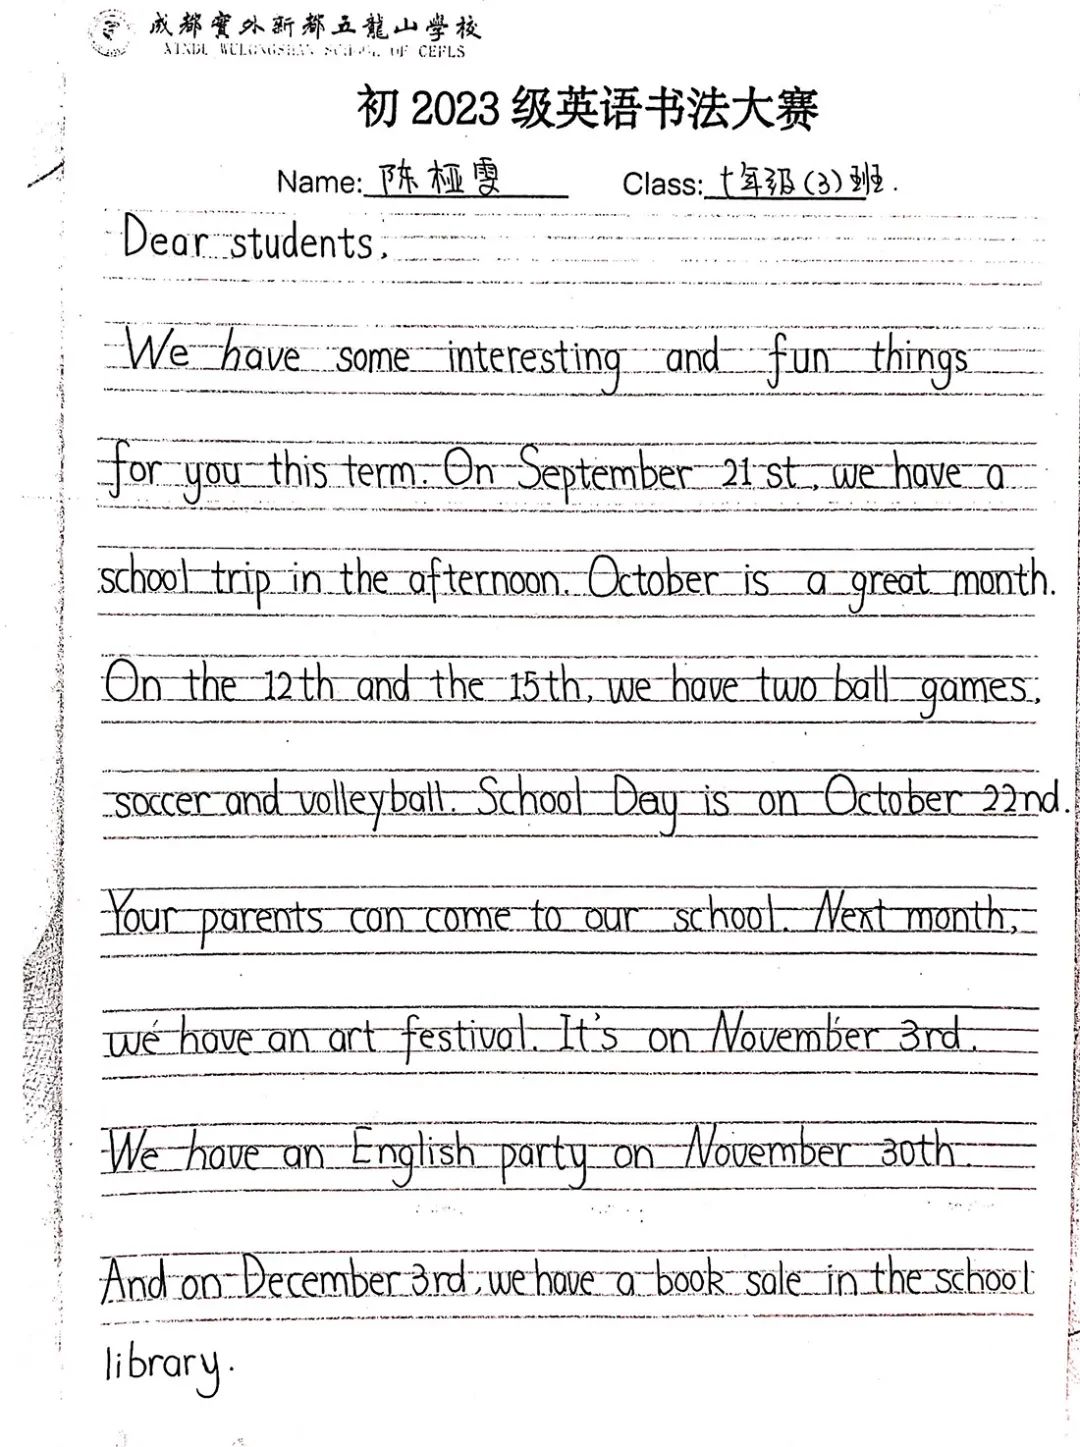 成都实外新都五龍山學校
XINDU WULONGSHAN SCHOOL OF CEFLS
初 2023 级英语书法大赛
Name: 陈桠雯 Class: 七年级(3)班.
Dear students,
We have some interesting and fun things
for you this term. On September 21st, we have a
school trip in the afternoon. October is a great month.
On the 12th and the 15th, we have two ball games,
soccer and volleyball. School Day is on October 22nd.
Your parents can come to our school. Next month,
we have an art festival. It's on November 3rd.
We have an English party on November 30th.
And on December 3rd, we have a book sale in the school
library.